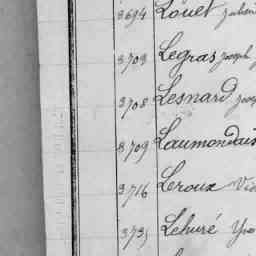 3694 Louet
3703 Legras Joseph
3708 Lesnard
8709 Laumondais
3716 Leroux
3731 Lehuré